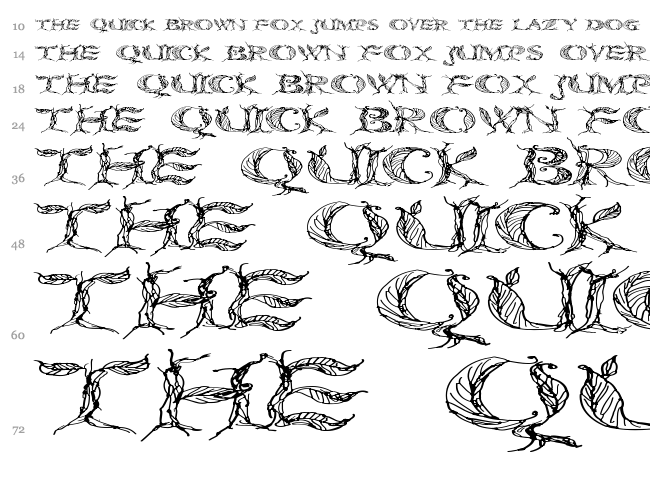 10 THE QUICK BROWN FOX JUMPS OVER THE LAZY DOG
14 THE QUICK BROWN FOX JUMPS OVER
18 THE QUICK BROWN FOX JUMP
24 THE QUICK BROWN FO
36 THE QUICK BRO
48 THE QUICK
60 THE QUIC
72 THE QU